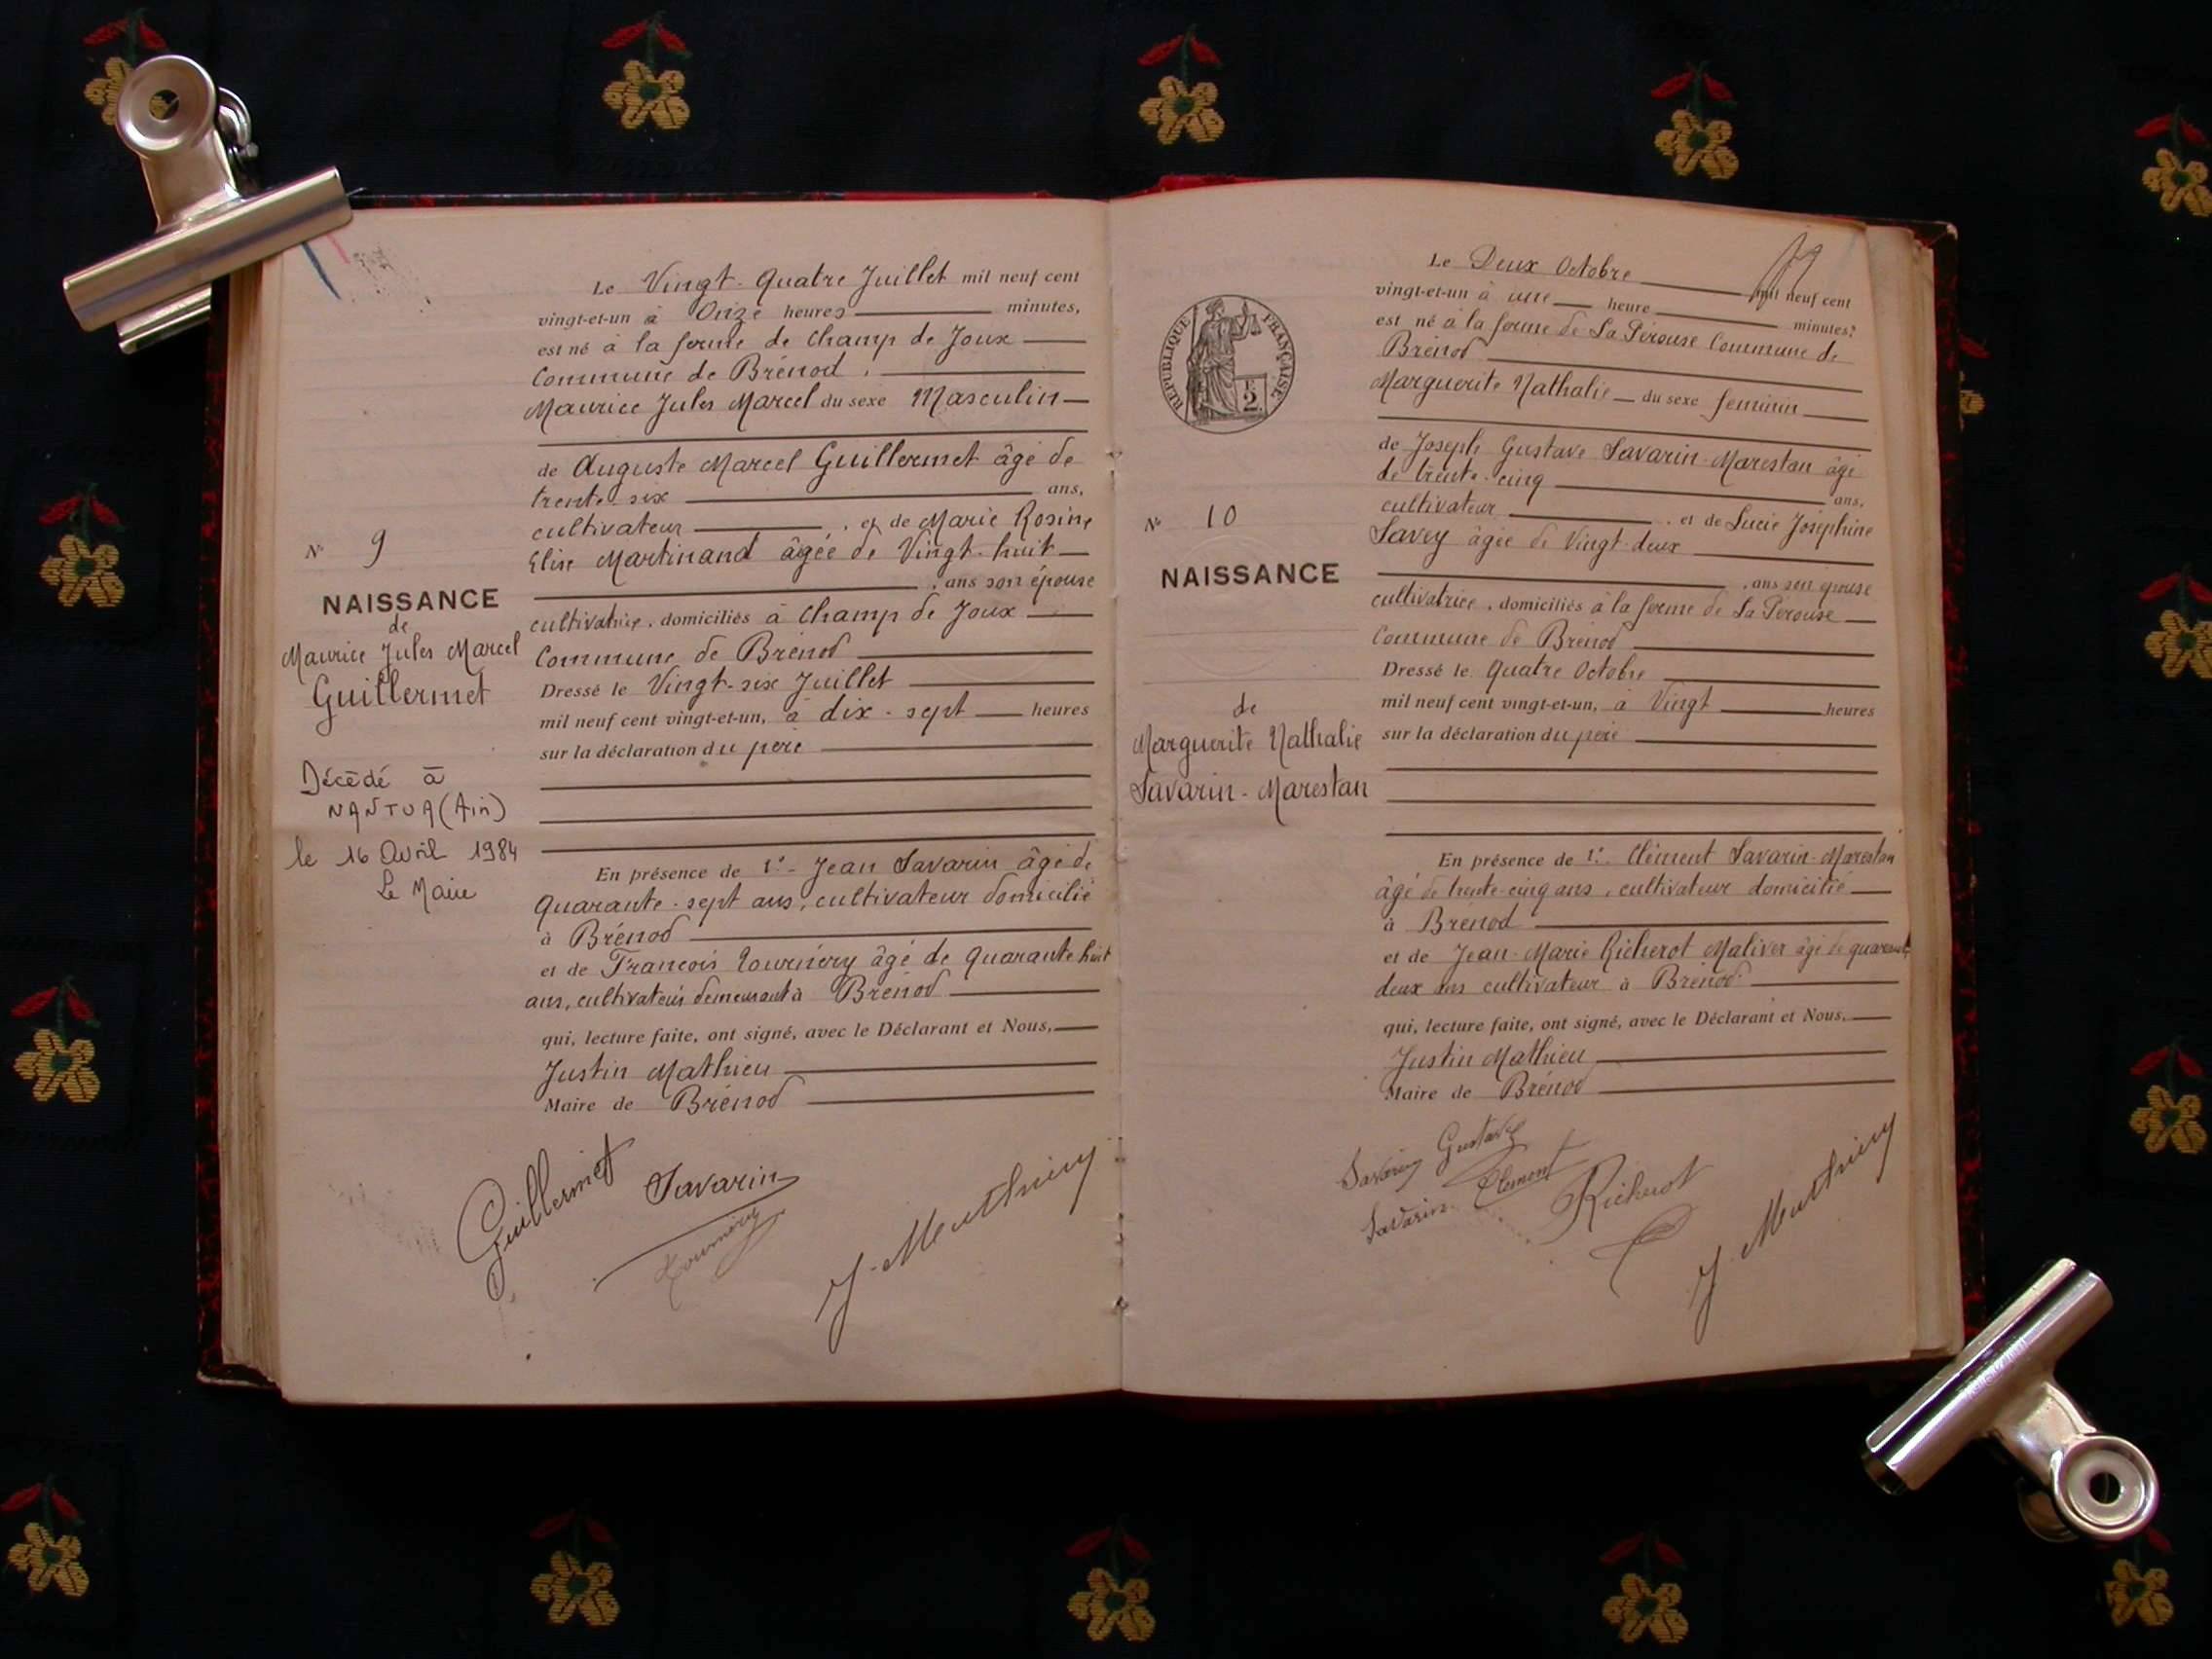 Le Vingt-Quatre Juillet mil neuf cent
vingt-et-un à Onze heures minutes,
est né à la ferme de Champ de Joux
Commune de Brénod,
Maurice Jules Marcel du sexe Masculin
de Auguste Marcel Guillermet âgé de
trente-six ans,
cultivateur, et de Marie Rosine
Elise Martinand âgée de Vingt-huit
, ans son épouse
cultivatrice, domiciliés à Champ de Joux
Commune de Brénod
Dressé le Vingt-six Juillet
mil neuf cent vingt-et-un, à dix-sept heures
sur la déclaration du père
En présence de 1° - Jean Savarin âgé de
Quarante-sept ans, cultivateur domicilié
à Brénod
et de François Tournéry âgé de Quarante huit
ans, cultivateurs demeurant à Brénod
qui, lecture faite, ont signé, avec le Déclarant et Nous,
Justin Mathieu
Maire de Brénod
N° 9
NAISSANCE
de
Maurice Jules Marcel
Guillermet
Décédé à
NANTUA (Ain)
le 16 Avril 1984
Le Maire
Guillermet
Savarin
Tournéry
J. Mathieu
Le Deux Octobre mil neuf cent
vingt-et-un à une heure minutes,
est né à la ferme de La Pérouse Commune de
Brénod
Marguerite Nathalie du sexe féminin
de Joseph Gustave Savarin-Marestan âgé
de trente-cinq ans,
cultivateur, et de Lucie Joséphine
Savey âgée de Vingt-deux
, ans son épouse
cultivatrice, domiciliés à la ferme de La Pérouse
Commune de Brénod
Dressé le Quatre Octobre
mil neuf cent vingt-et-un, à Vingt heures
sur la déclaration du père
En présence de 1° Clément Savarin-Marestan
âgé de trente-cinq ans, cultivateur domicilié
à Brénod
et de Jean-Marie Richerot Maliver âgé de quarante
deux ans cultivateur à Brénod
qui, lecture faite, ont signé, avec le Déclarant et Nous,
Justin Mathieu
Maire de Brénod
RÉPUBLIQUE FRANÇAISE
2
N° 10
NAISSANCE
de
Marguerite Nathalie
Savarin-Marestan
Savarin Gustave
Savarin Clément
Richerot
J. Mathieu